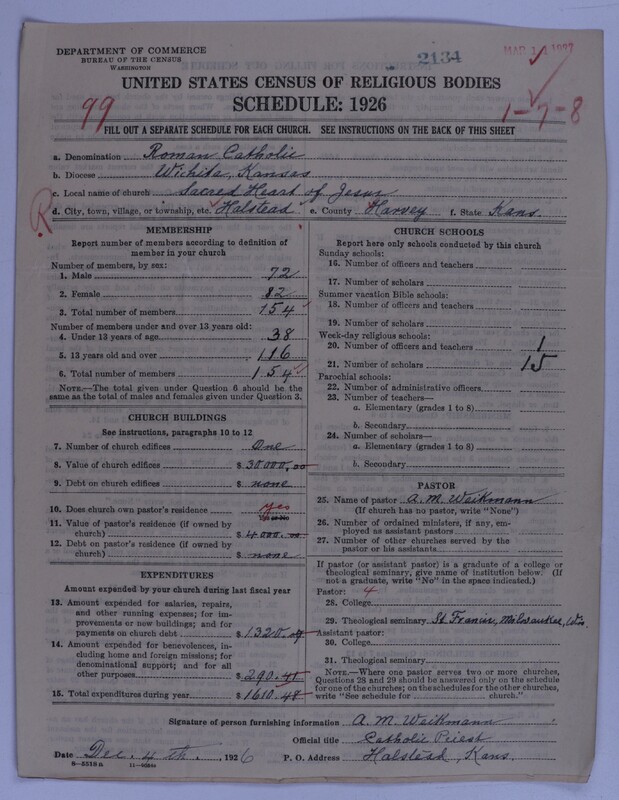 DEPARTMENT OF COMMERCE
BUREAU OF THE CENSUS
WASHINGTON
2134
UNITED STATES CENSUS OF RELIGIOUS BODIES
SCHEDULE: 1926
99
1-7-8
FILL OUT A SEPARATE SCHEDULE FOR EACH CHURCH. SEE INSTRUCTIONS ON THE BACK OF THIS SHEET
a. Denomination Roman Catholic
b. Diocese Wichita, Kansas
c. Local name of church Sacred Heart of Jesus
R
d. City, town, village, or township, etc. Halstead e. County Harvey f. State Kans.
MEMBERSHIP
Report number of members according to definition of
member in your church
Number of members, by sex:
1. Male 72
2. Female 82
3. Total number of members 154
Number of members under and over 13 years old:
4. Under 13 years of age 38
5. 13 years old and over 116
6. Total number of members 154
NOTE.—The total given under Question 6 should be
same as the total of males and females given under Question 3.
CHURCH BUILDINGS
See instructions, paragraphs 10 to 12
7. Number of church edifices One
8. Value of church edifices $ 30000.00
9. Debt on church edifices $ none
10. Does church own pastor's residence yes
11. Value of pastor's residence (if owned by
church) $ 4000.00
12. Debt on pastor's residence (if owned by
church) $ none
EXPENDITURES
Amount expended by your church during last fiscal year
13. Amount expended for salaries, repairs,
and other running expenses; for im-
provements or new buildings; and for
payments on church debt $ 1320.07
14. Amount expended for benevolences, in-
cluding home and foreign missions; for
denominational support; and for all
other purposes $ 290.41
15. Total expenditures during year $ 1610.48
CHURCH SCHOOLS
Report here only schools conducted by this church
Sunday schools:
16. Number of officers and teachers
17. Number of scholars
Summer vacation Bible schools:
18. Number of officers and teachers
19. Number of scholars
Week-day religious schools:
20. Number of officers and teachers 1
21. Number of scholars 15
Parochial schools:
22. Number of administrative officers
23. Number of teachers—
a. Elementary (grades 1 to 8)
b. Secondary
24. Number of scholars—
a. Elementary (grades 1 to 8)
b. Secondary
PASTOR
25. Name of pastor A. M. Weikmann
(If church has no pastor, write "None")
26. Number of ordained ministers, if any, em-
ployed as assistant pastors
27. Number of other churches served by the
pastor or his assistants
If pastor (or assistant pastor) is a graduate of a college or
theological seminary, give name of institution below. (If
not a graduate, write "No" in the space indicated.)
Pastor: 4
28. College
29. Theological seminary St. Francis, Milwaukee, Wis.
Assistant pastor:
30. College
31. Theological seminary
NOTE.—Where one pastor serves two or more churches,
Questions 28 and 29 should be answered only on the schedule
for one of the churches; on the schedules for the other churches,
write "See schedule for church."
Signature of person furnishing information A. M. Weikmann
Official title Catholic Priest
Date Dec. 4th, 1926 P. O. Address Halstead, Kans.